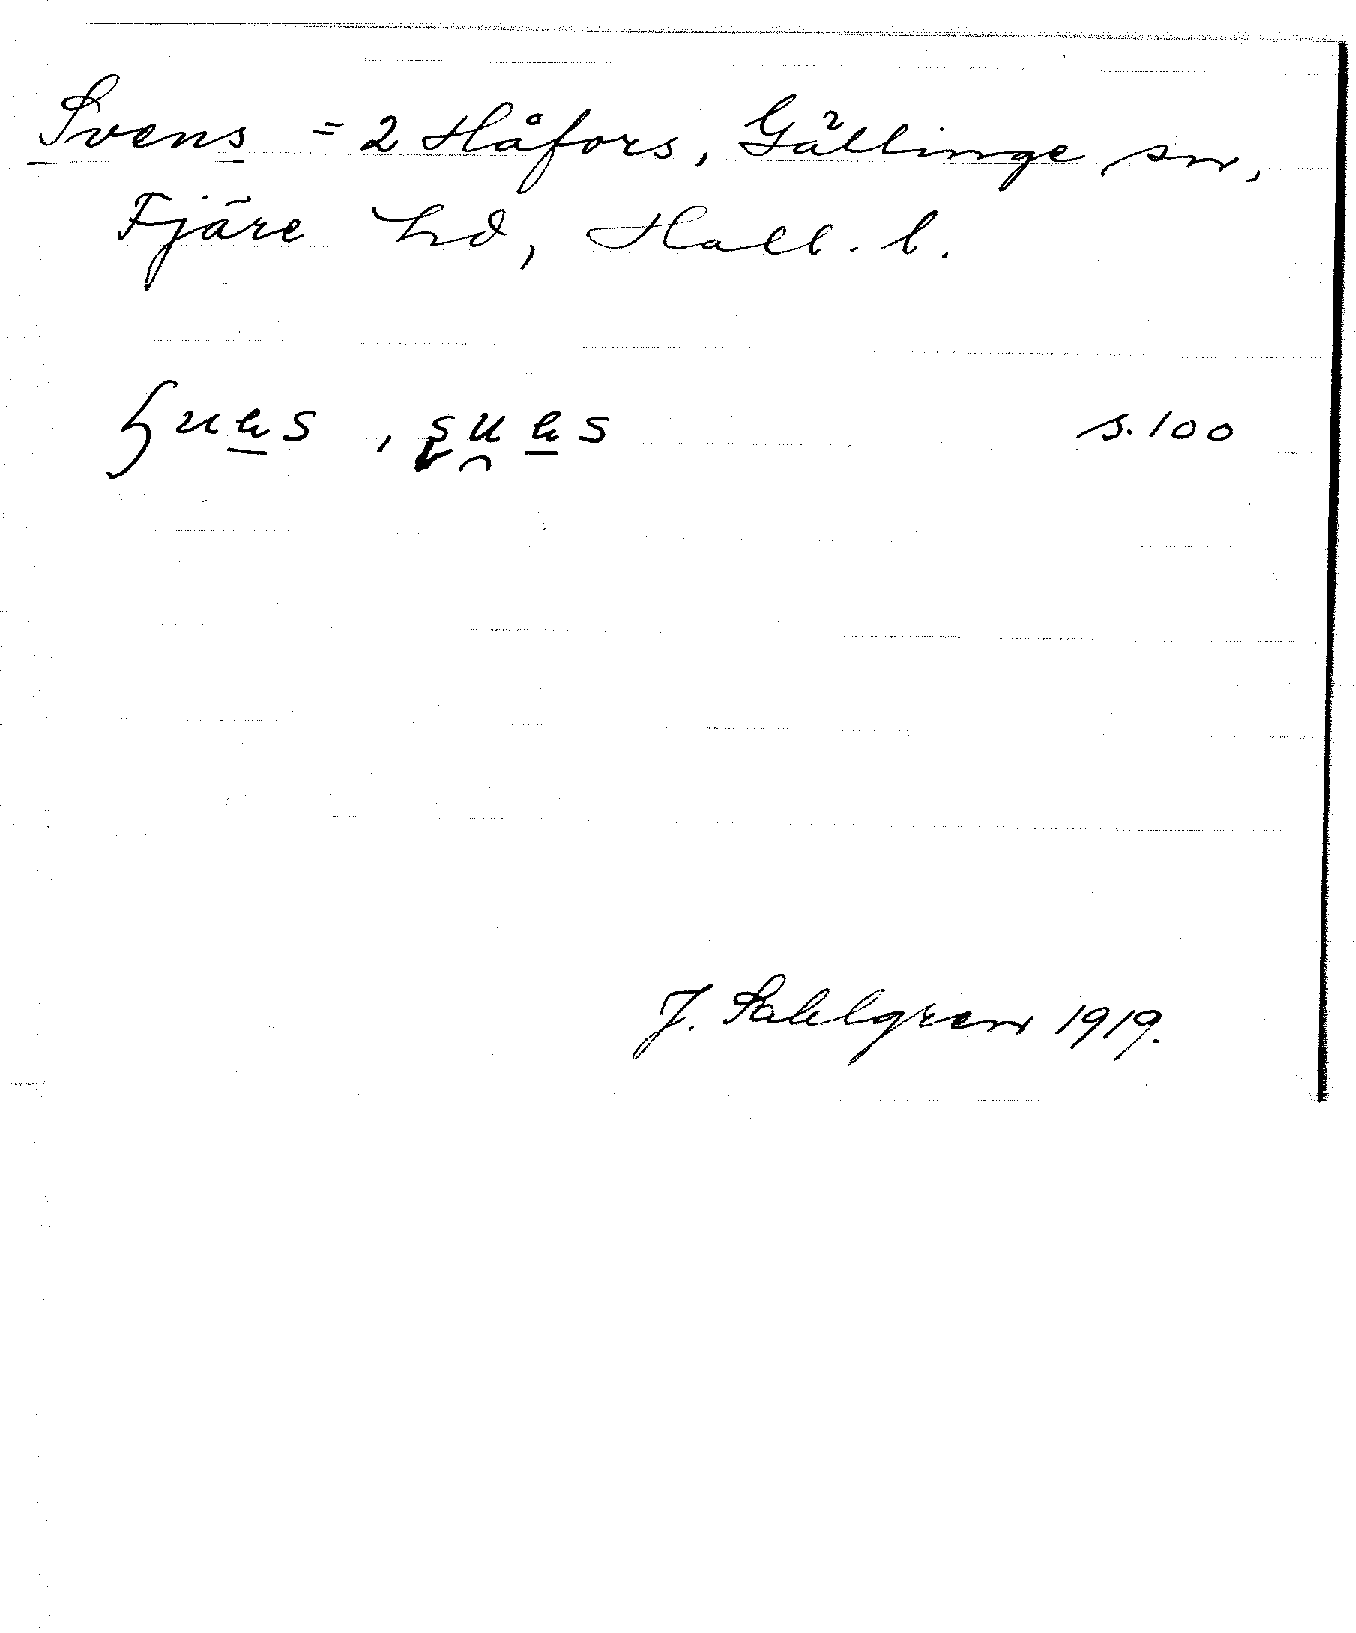 Svens = 2 Håfors, Gällinge sn,
Fjäre hd, Hall. l.
s. 100
J. Sahlgren 1919.